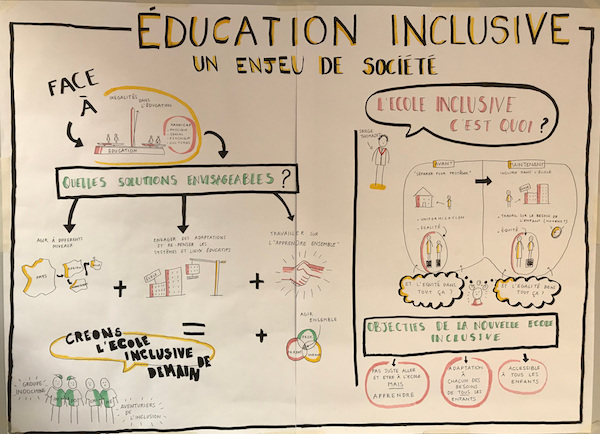 ÉDUCATION INCLUSIVE
UN ENJEU DE SOCIÉTÉ
FACE
À
INÉGALITÉS DANS
L'ÉDUCATION
ÉDUCATION
QUELLES SOLUTIONS ENVISAGEABLES ?
AGIR À DIFFÉRENTS
NIVEAUX
PAYS
+
ENGAGER DES ADAPTATIONS
LES
SYSTÈMES ET LIEUX ÉDUCATIFS
+
TRAVAILLER SUR
L'"APPRENDRE ENSEMBLE"
=
+
AGIR
ENSEMBLE
CREONS
L'ECOLE
INCLUSIVE
DE
DEMAIN
"GROUPE
INDOCILE"
AVENTURIERS
DE
L'INCLUSION
L'ECOLE INCLUSIVE
C'EST QUOI ?
SERGE
THOMAZET
AVANT
"SÉPARER POUR PROTÉGER"
• UNIFORMISATION
• ÉGALITÉ
MAINTENANT
INCLURE DANS L'ÉCOLE
• TRAVAIL SUR LE BESOIN DE
L'ENFANT
• ÉQUITÉ
ET L'EQUITÉ DANS
TOUT ÇA ?
ET L'EGALITÉ DANS
TOUT ÇA ?
OBJECTIFS DE LA NOUVELLE ECOLE
INCLUSIVE
PAS JUSTE ALLER
ET ETRE À L'ECOLE
MAIS
APPRENDRE
ADAPTATION
À
CHACUN DES
BESOINS
DE TOUS LES
ENFANTS
ACCESSIBLE
À TOUS LES
ENFANTS